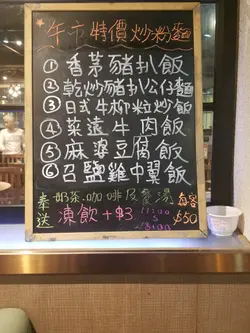 午市特價炒粉麵
① 香茅豬扒飯
② 乾炒豬扒公仔麵
③ 日式牛柳粒炒飯
④ 菜遠牛肉飯
⑤ 麻婆豆腐飯
⑥ 召鹽雞中翼飯
奉送 奶茶.咖啡及餐湯 每客
凍飲+$3 $50